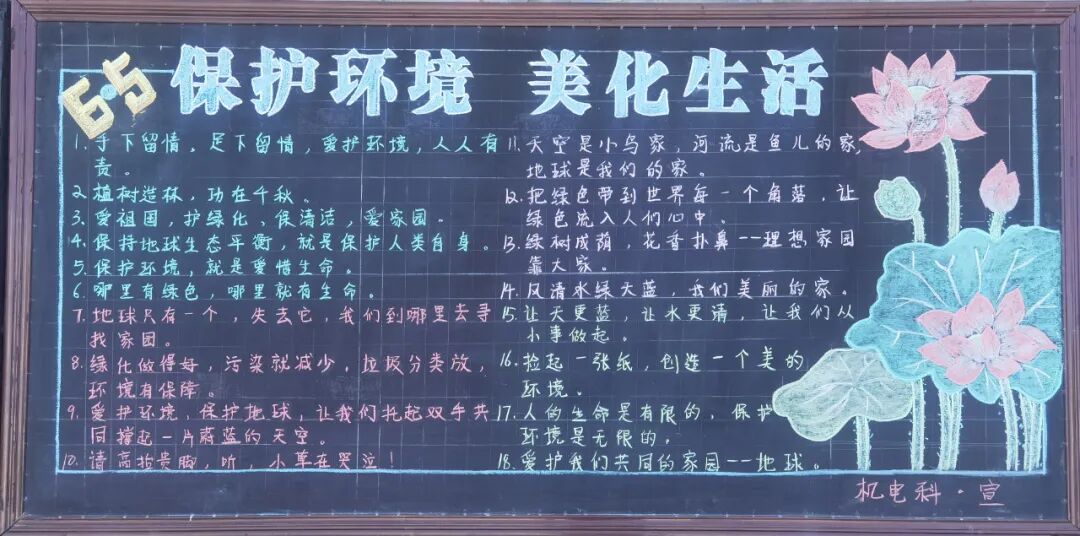 6·5 保护环境 美化生活
1. 手下留情。足下留情，爱护环境，人人有
责。
2. 植树造林，功在千秋。
3. 爱祖国，护绿化、保清洁，爱家园。
4. 保持地球生态平衡，就是保护人类自身。
5. 保护环境，就是爱惜生命。
6. 哪里有绿色，哪里就有生命。
7. 地球只有一个，失去它，我们到哪里去寻
找家园。
8. 绿化做得好，污染就减少，垃圾分类放，
环境有保障。
9. 爱护环境，保护地球，让我们托起双手共
同撑起一片蔚蓝的天空。
10. 请高抬贵脚，听，小草在哭泣！
11. 天空是小鸟家，河流是鱼儿的家，
地球是我们的家。
12. 把绿色带到世界每一个角落，让
绿色流入人们心中。
13. 绿树成荫，花香扑鼻——理想家园
靠大家。
14. 风清水绿天蓝，我们美丽的家。
15. 让天更蓝，让水更清，让我们从
小事做起。
16. 捡起一张纸，创造一个美的
环境。
17. 人的生命是有限的，保护
环境是无限的，
18. 爱护我们共同的家园——地球。
机电科·宣